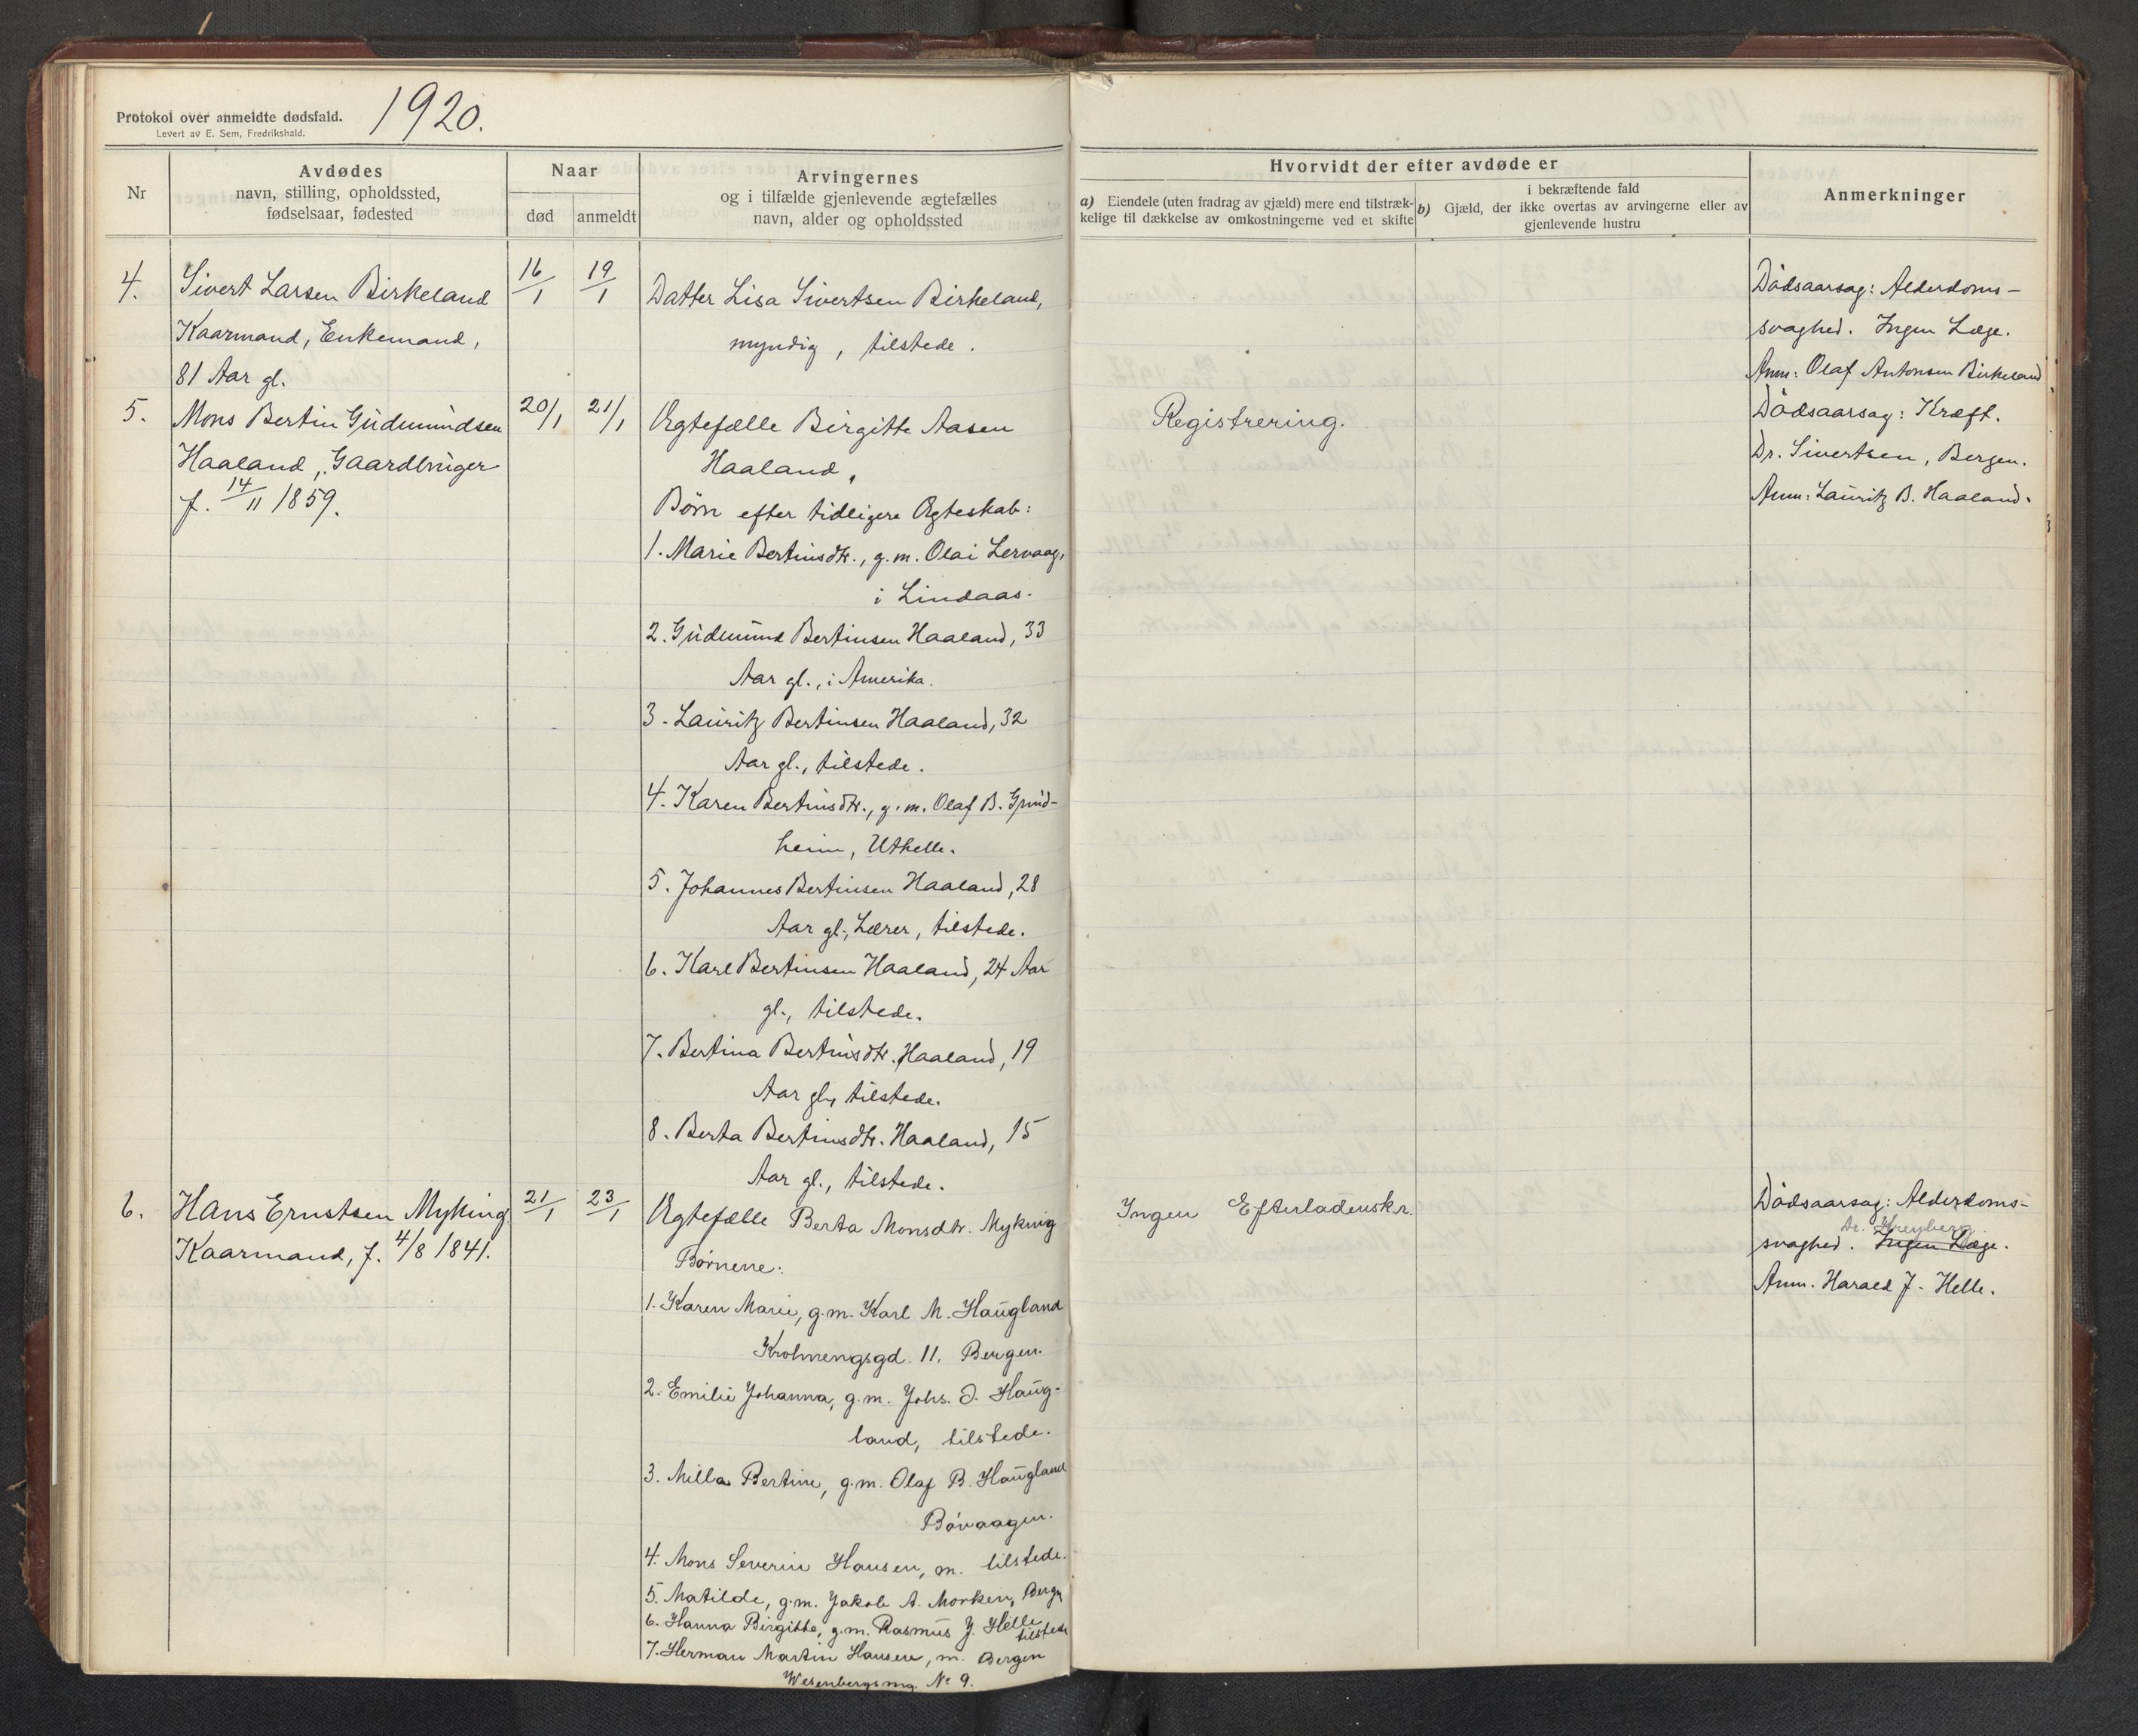 Protokol over anmeldte dødsfald.
Levert av E. Sem, Fredrikshald.
1920.
Nr
Avdødes
navn, stilling, opholdssted,
fødselsaar, fødested
Naar
død
anmeldt
Arvingernes
og i tilfælde gjenlevende ægtefælles
navn, alder og opholdssted
Hvorvidt der efter avdøde er
a) Eiendele (uten fradrag av gjæld) mere end tilstræk-
kelige til dækkelse av omkostningerne ved et skifte
i bekræftende fald
b) Gjæld, der ikke overtas av arvingerne eller av
gjenlevende hustru
Anmerkninger
4.
Sivert Larsen Birkeland
Kaarmand, Enkemand,
81 Aar gl.
16/1
19/1
Datter Lisa Sivertsen Birkeland,
myndig, tilstede.
Dødsaarsag: Alderdoms-
svaghed. Ingen Læge.
Anm: Olaf Antonsen Birkeland
5.
Mons Bertin Gudmundsen
Haaland, Gaardbruger
f. 14/11 1859.
20/1
21/1
Ægtefælle Birgitte Aasen
Haaland,
Børn efter tidligere Ægteskab:
1. Marie Bertinsdtr., g.m. Olai Lervaag,
i Lindaas.
2. Gudmund Bertinsen Haaland, 33
Aar gl., i Amerika.
3. Lauritz Bertinsen Haaland, 32
Aar gl., tilstede.
4. Karen Bertinsdtr., g.m. Olaf B. Grind-
heim, Uthelle.
5. Johannes Bertinsen Haaland, 28
Aar gl., Lærer, tilstede.
6. Karl Bertinsen Haaland, 24 Aar
gl., tilstede.
7. Bertina Bertinsdtr. Haaland, 19
Aar gl., tilstede.
8. Berta Bertinsdtr. Haaland, 15
Aar gl., tilstede.
Registrering.
Dødsaarsag: Kræft.
Dr. Sivertsen, Bergen.
Anm: Lauritz B. Haaland.
6.
Hans Ernstsen Myking
Kaarmand, f. 4/8 1841.
21/1
23/1
Ægtefælle Berta Monsdtr. Myking
Børnene:
1. Karen Marie, g.m. Karl M. Haugland
Krohnengsgd. 11. Bergen.
2. Emilie Johanna, g.m. Johs. J. Haug-
land, tilstede.
3. Milla Bertine, g.m. Olaf B. Haugland
Bøvaagen.
4. Mons Severin Hansen, m. tilstede.
5. Matilde, g.m. Jakob A. Morken, Bergn
6. Hanna Birgitte, g.m. Rasmus J. Helle
tilstede
7. Herman Martin Hansen, m. Bergen
Wesenbergsmg. No 9.
Ingen Efterladenskr.
Dødsaarsag: Alderdoms-
Dr. Kreyberg
svaghed. Ingen Læge.
Anm. Harald J. Helle.